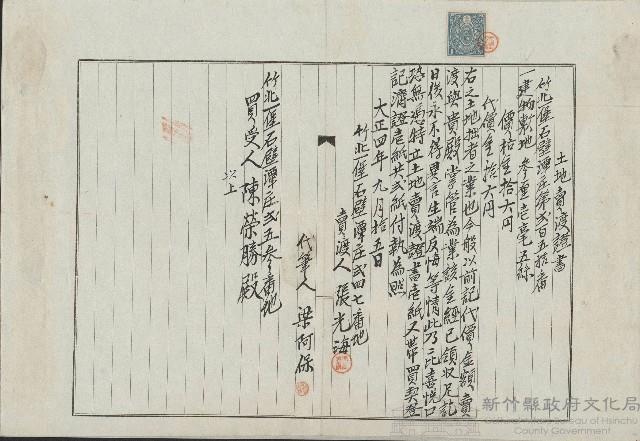 土地賣渡證書
竹北一堡石壁潭庄第貳百五拾番
一建物敷地 參厘壱毫五絲
價格金拾六円
代價金拾六円
右之土地拙者之業也今般以前記代價金額賣
渡與貴殿掌管為業該金經已領收足訖
日後永不得異言生端反悔等情此乃二比喜悅口
恐無憑特立土地賣渡證書壱紙又帶買契登
記濟證壱紙共貳紙付執為照
大正四年九月拾五日
竹北一堡石壁潭庄貳四七番地
賣渡人 張光海
代筆人 梁阿保
竹北一堡石壁潭庄貳五參番地
買受人 陳榮勝殿
以上
新竹縣政府文化局
Cultural Affairs Bureau of Hsinchu
County Government